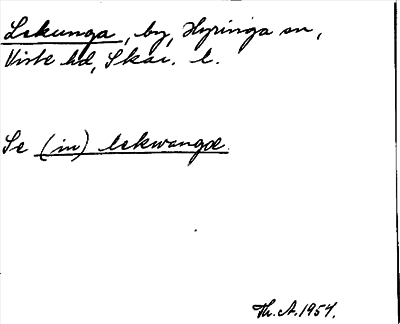 Lekunga, by, Hyringa sn,
Viste hd, Skar. l.
Se (in) lekwangæ
Th. A. 1954.